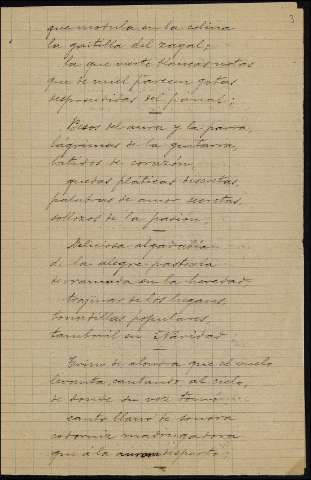 3
que modula en la colina
la gaitilla del zagal;
la que vierte blancas notas
que de miel parecen gotas
desprendidas del panal;
Besos del aura y la parra,
lágrimas de la guitarra,
latidos de corazón,
quedas pláticas discretas,
palabras de amor secretas,
sollozos de la pasión.
Deliciosa algarabía
de la alegre pastoría
derramada en la heredad,
trajinas de los lugares,
tonadillas populares,
tamboril en Navidad.
Trino de alondra que el vuelo
levanta, cantando, al cielo,
de donde su voz
canto llano de sonora
codorniz madrugadora
que á la disperta;